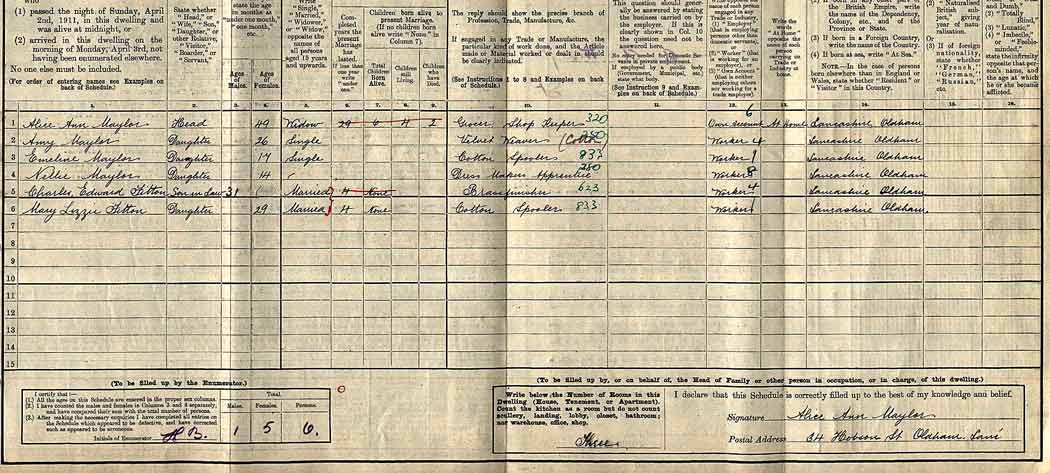 who
(1) passed the night of Sunday, April
2nd, 1911, in this dwelling and
was alive at midnight, or
(2) arrived in this dwelling on the
morning of Monday, April 3rd, not
having been enumerated elsewhere.
No one else must be included.
(For order of entering names see Examples on
back of Schedule.)
State whether
"Head," or
"Wife," "Son,"
"Daughter,"
or other
Relative,
"Visitor,"
"Boarder," or
"Servant,"
state the age
in months as
"under one month,"
"one month,"
Ages of Males.
Ages of Females.
Write
"Single,"
"Married,"
"Widower,"
or "Widow,"
opposite the
names of
all persons
aged 15 years
and upwards.
Completed years the present Marriage has lasted.
If less than one year write "under one."
Children born alive to
present Marriage.
(If no children born
alive write "None" in
Column 7).
Total Children Born Alive.
Children still Living.
Children who have Died.
The reply should show the precise branch of
Profession, Trade, Manufacture, &c.
If engaged in any Trade or Manufacture, the
particular kind of work done, and the Article
made or Material worked or dealt in should
be clearly indicated.
(See Instructions 1 to 8 and Examples on back
of Schedule.)
This question should gene-
rally be answered by stating
the business carried on by
the employer. If this is
clearly shown in Col. 10
the question need not be
answered here.
No entry needed for Domestic Ser-
vants in private employment.
If employed by a public body
(Government, Municipal, etc.)
state what body.
(See Instruction 9 and Exam-
ples on back of Schedule.)
Write the words "At Home" opposite the name of each person carrying on Trade or Industry at home.
(2) If born in any other part of
the British Empire, write
the name of the Dependency,
Colony, etc., and of the
Province or State.
(3) If born in a Foreign Country,
write the name of the Country.
(4) If born at sea, write "At Sea."
NOTE.—In the case of persons
born elsewhere than in England or
Wales, state whether "Resident" or
"Visitor" in this Country.
1. 2. 3. 4. 5. 6. 7. 8. 9. 10. 11. 12. 13. 14. 15. 16.
1 Alice Ann Maylor Head 49 Widow 29 6 4 2 Grocer Shop Keeper 320 Own account 6 At Home Lancashire Oldham
2 Amy Maylor Daughter 26 Single Velvet Weaver (Cotton) Worker 4 Lancashire Oldham
3 Emeline Maylor Daughter 17 Single Cotton Spooler 833 Worker 1 Lancashire Oldham
4 Nellie Maylor Daughter 14 Dress Makers Apprentice 280 Worker 8 Lancashire Oldham
5 Charles Edward Fitton Son in Law 31 Married 4 none Brassfinisher 623 Worker 4 Lancashire Oldham
6 Mary Lizzie Fitton Daughter 29 Married 4 none Cotton Spooler 833 Worker 1 Lancashire Oldham.
7
8
9
10
11
12
13
14
15
(To be filled up by the Enumerator.)
I certify that:—
(1.) All the ages on this Schedule are entered in the proper sex columns.
(2.) I have counted the males and females in Columns 3 and 4 separately,
and have compared their sum with the total number of persons.
(3.) After making the necessary enquiries I have completed all entries on
the Schedule which appeared to be defective, and have corrected
such as appeared to be erroneous.
Initials of Enumerator
Total
Males. Females. Persons.
1 5 6.
(To be filled up by, or on behalf of, the Head of Family or other person in occupation, or in charge, of this dwelling.)
Write below the Number of Rooms in this
Dwelling (House, Tenement, or Apartment).
Count the kitchen as a room but do not count
scullery, landing, lobby, closet, bathroom;
nor warehouse, office, shop.
Three
I declare that this Schedule is correctly filled up to the best of my knowledge and belief.
Signature Alice Ann Maylor
Postal Address 34 Hobson St Oldham